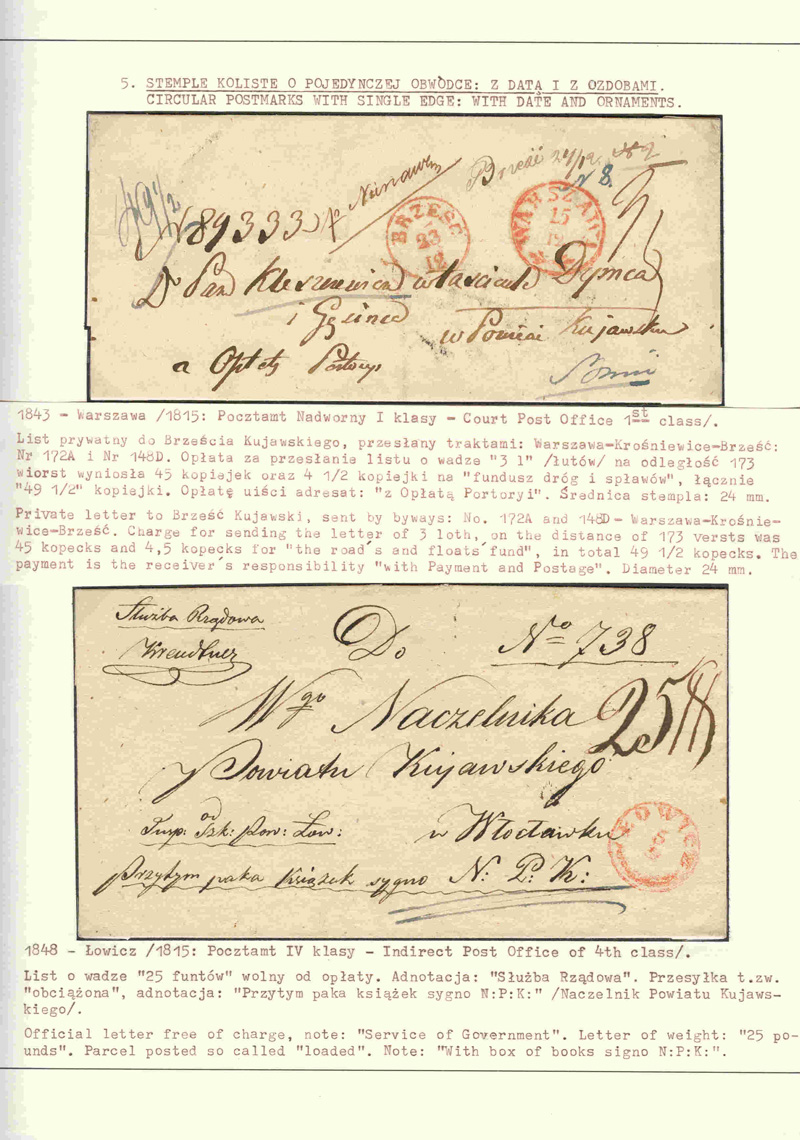 5. STEMPLE KOLISTE O POJEDYNCZEJ OBWÓDCE: Z DATA I Z OZDOBAMI.
CIRCULAR POSTMARKS WITH SINGLE EDGE: WITH DATE AND ORNAMENTS.
49 1/2
89333
BRZEŚĆ
23
12
WARSZAWA
15
Pan Kleszczewicz właściciel Dymca
w Powiecie Kujawskim
a Opłatą Portoryi
1843 - Warszawa /1815: Pocztamt Nadworny I klasy - Court Post Office 1st class/.
List prywatny do Brześcia Kujawskiego, przesłany traktami: Warszawa-Krośniewice-Brześć:
Nr 172A i Nr 148D. Opłata za przesłanie listu o wadze "3 l" /łutów/ na odległość 173
wiorst wyniosła 45 kopiejek oraz 4 1/2 kopiejki na "fundusz dróg i spławów", łącznie
"49 1/2" kopiejki. Opłatę uiści adresat: "z Opłatą Portoryi". Średnica stempla: 24 mm.
Private letter to Brześć Kujawski, sent by byways: No. 172A and 148D- Warszawa-Krośnie-
wice-Brześć. Charge for sending the letter of 3 loth, on the distance of 173 versts was
45 kopecks and 4,5 kopecks for "the road´s and floats´fund", in total 49 1/2 kopecks. The
payment is the receiver´s responsibility "with Payment and Postage". Diameter 24 mm.
Służba Rządowa
Do
No 738
Wgo Naczelnika
25 ℔
Powiatu Kujawskiego
od
Insp: Szk: Pow: Łow:
w Włocławku
ŁOWICZ
5
Przytym paka Książek sygno N: P: K:
1848 - Łowicz /1815: Pocztamt IV klasy - Indirect Post Office of 4th class/.
List o wadze "25 funtów" wolny od opłaty. Adnotacja: "Służba Rządowa". Przesyłka t.zw.
"obciążona", adnotacja: "Przytym paka książek sygno N:P:K:" /Naczelnik Powiatu Kujaws-
kiego/.
Official letter free of charge, note: "Service of Government". Letter of weight: "25 po-
unds". Parcel posted so called "loaded". Note: "With box of books signo N:P:K:".